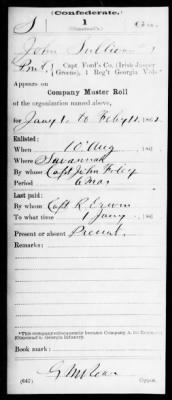 (Confederate.)
S 1
John Sullivan
Pvt., Capt. Ford's Co. (Irish Jasper
Greens), 1 Reg't Georgia Vols.
Appears on
Company Muster Roll
of the organization named above,
for Jany 1 to Feby 186
Enlisted:
When 10 Aug, 186
Where Savannah
By whom Capt John Foley
Period 6 mos
Last paid:
By whom Capt R. Erwin
To what time 1 Jany, 186
Present or absent Present
Remarks:
*This company subsequently became Company A, 1st
(Olmstead's) Georgia Infantry.
Book mark:
(642) Copyist.